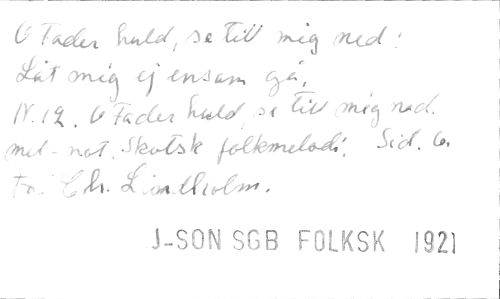 O Fader huld, se till mig ned!
Låt mig ej ensam gå,
N. 12. O Fader huld, se till mig ned.
med not. Skotsk folkmelodi. Sid.
Chr. Lindholm.
J-SON SGB FOLKSK 1921